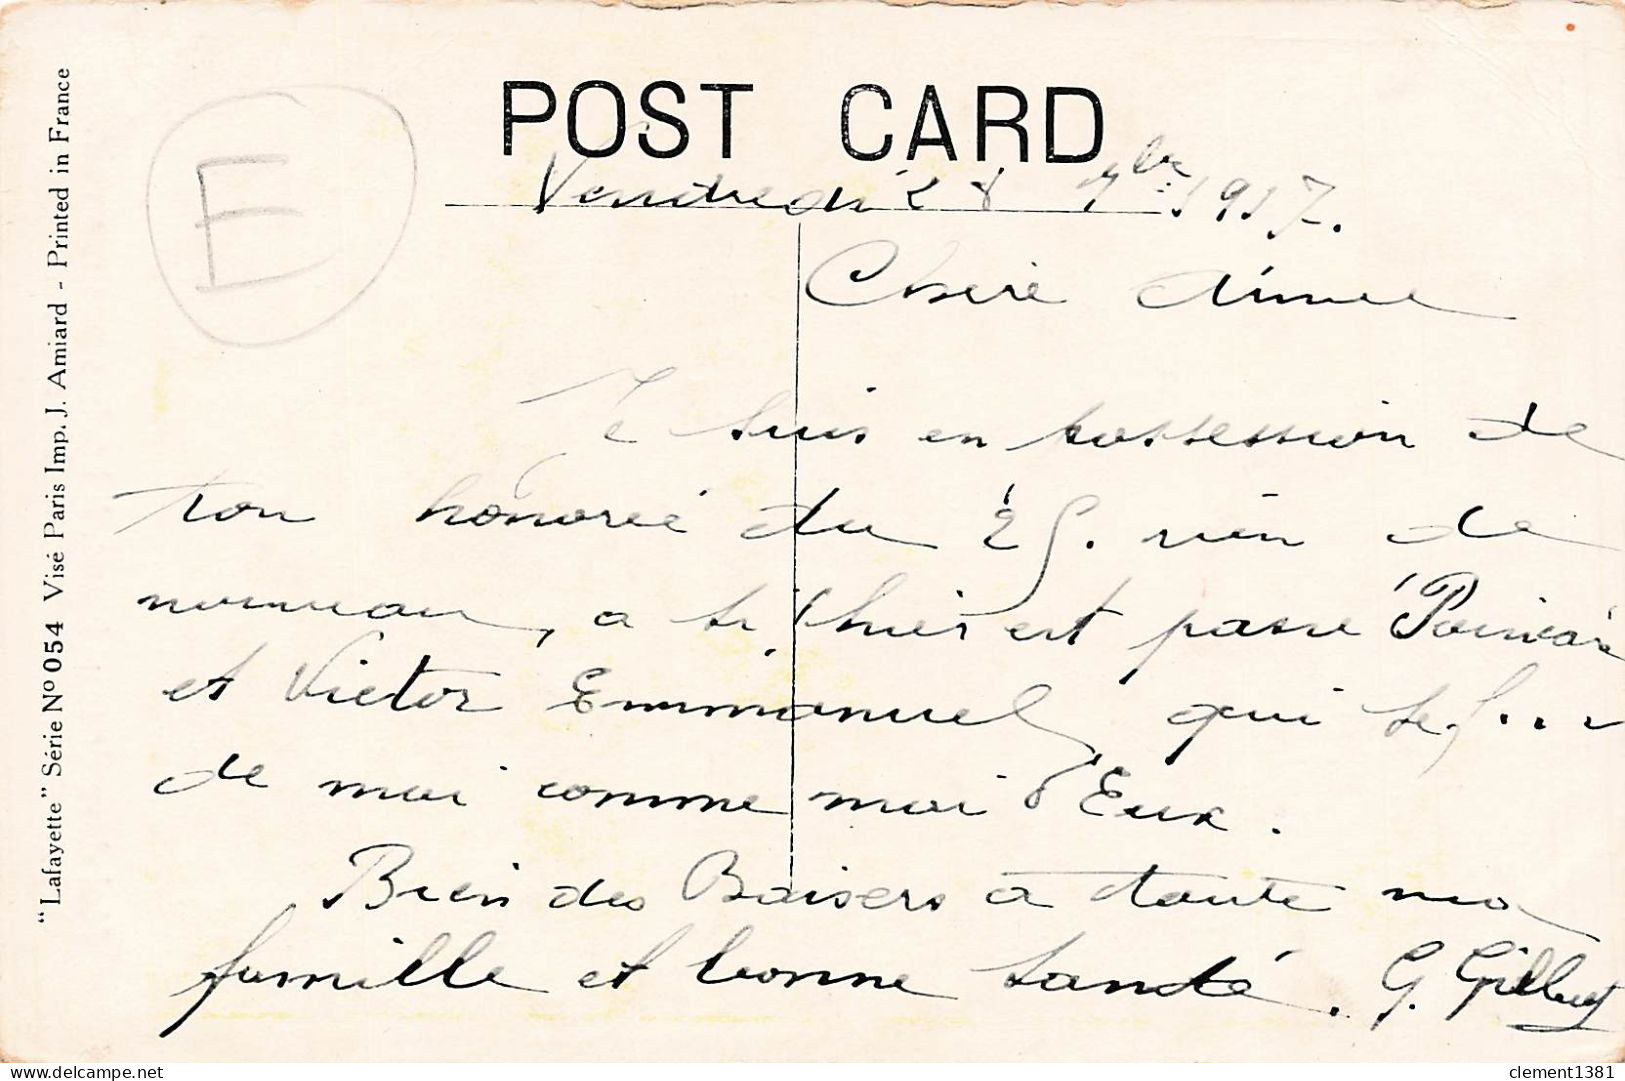 POST CARD
Vendredi 28 7bre 1917.
Chère Aimée
Je suis en possession de
ton honoré du 25. rien de
nouveau, a si, hier est passé Poincaré
et Victor Emmanuel qui se f...
de moi comme moi d'Eux.
Bien des Baisers a toute ma
famille et bonne santé. G. Gilbert
E
"Lafayette" Série Nº 054 Visé Paris Imp. J. Amiard - Printed in France
delcampe.net
clement1381